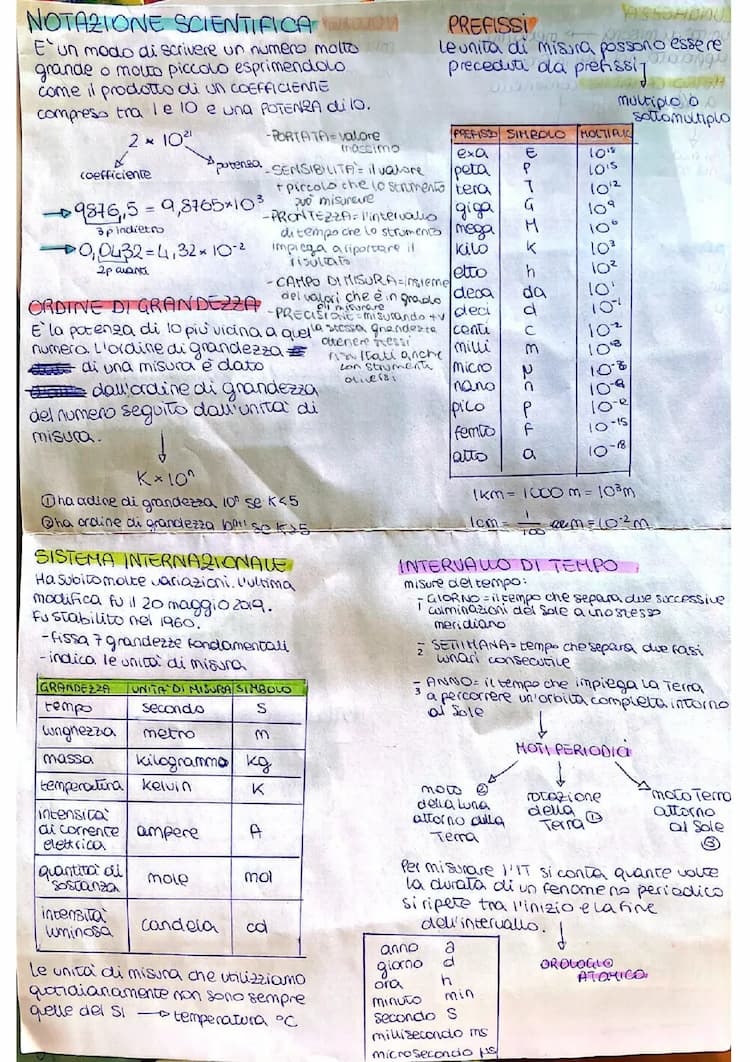 NOTAZIONE SCIENTIFICA
E' un modo di scrivere un numero molto
grande o molto piccolo esprimendolo
come il prodotto di un COEFFICIENTE
compreso tra 1 e 10 e una POTENZA di 10.
2 × 10²¹
coefficiente
potenza
9876,5 = 9,8765×10³
3p indietro
0,0432 = 4,32 × 10⁻²
2p avanti
-PORTATA = valore
massimo
-SENSIBILITA' = il valore
+ piccolo che lo strumento
può misurare
-PRONTEZZA = l'intervallo
di tempo che lo strumento
impiega a riportare il
risultato
- CAMPO DI MISURA = insieme
dei valori che è in grado
di misurare
-PRECISIONE = misurando +v
la stessa grandezza
ottenere stessi
risultati anche
con strumenti
diversi
ORDINE DI GRANDEZZA
E' la potenza di 10 più vicina a quel
numero. L'ordine di grandezza
di una misura è dato
dall'ordine di grandezza
del numero seguito dall'unità di
misura.
K × 10ⁿ
① ha ordine di grandezza 10ⁿ se K<5
② ha ordine di grandezza 10ⁿ⁺¹ se K>5
PREFISSI
Le unità di misura possono essere
precedute da prefissi
multiplo o
sottomultiplo
PREFISSI SIMBOLO
exa E 10¹⁸
peta P 10¹⁵
tera T 10¹²
giga G 10⁹
mega M 10⁶
kilo K 10³
etto h 10²
deca da 10¹
deci d 10⁻¹
centi c 10⁻²
milli m
micro μ
nano n 10⁻⁹
pico p
femto F 10⁻¹⁵
atto a 10⁻¹⁸
1km = 1000 m = 10³m
1cm = 1/100 m = 10⁻²m
SISTEMA INTERNAZIONALE
Ha subito molte variazioni. L'ultima
modifica fu il 20 maggio 2019.
Fu stabilito nel 1960.
-fissa 7 grandezze fondamentali
-indica le unità di misura
GRANDEZZA UNITA' DI MISURA SIMBOLO
tempo secondo S
lunghezza metro m
massa kilogrammo kg
temperatura kelvin K
intensità
di corrente ampere A
elettrica
quantità di mole mol
sostanza
intensità
luminosa candela cd
Le unità di misura che utilizziamo
quotidianamente non sono sempre
quelle del SI → temperatura °C
INTERVALLO DI TEMPO
misure del tempo:
1 - GIORNO = il tempo che separa due successive
culminazioni del Sole a uno stesso
meridiano
2 - SETTIMANA = tempo che separa due fasi
lunari consecutive
3 - ANNO = il tempo che impiega la Terra
a percorrere un'orbita completa intorno
al Sole
MOTI PERIODICI
moto ②
della Luna
attorno alla
Terra
rotazione
della
Terra ①
moto Terra
attorno
al Sole
③
Per misurare l'IT si conta quante volte
la durata di un fenomeno periodico
si ripete tra l'inizio e la fine
dell'intervallo.
OROLOGIO
ATOMICO
anno a
giorno d
ora h
minuto min
secondo S
millisecondo ms
microsecondo μs